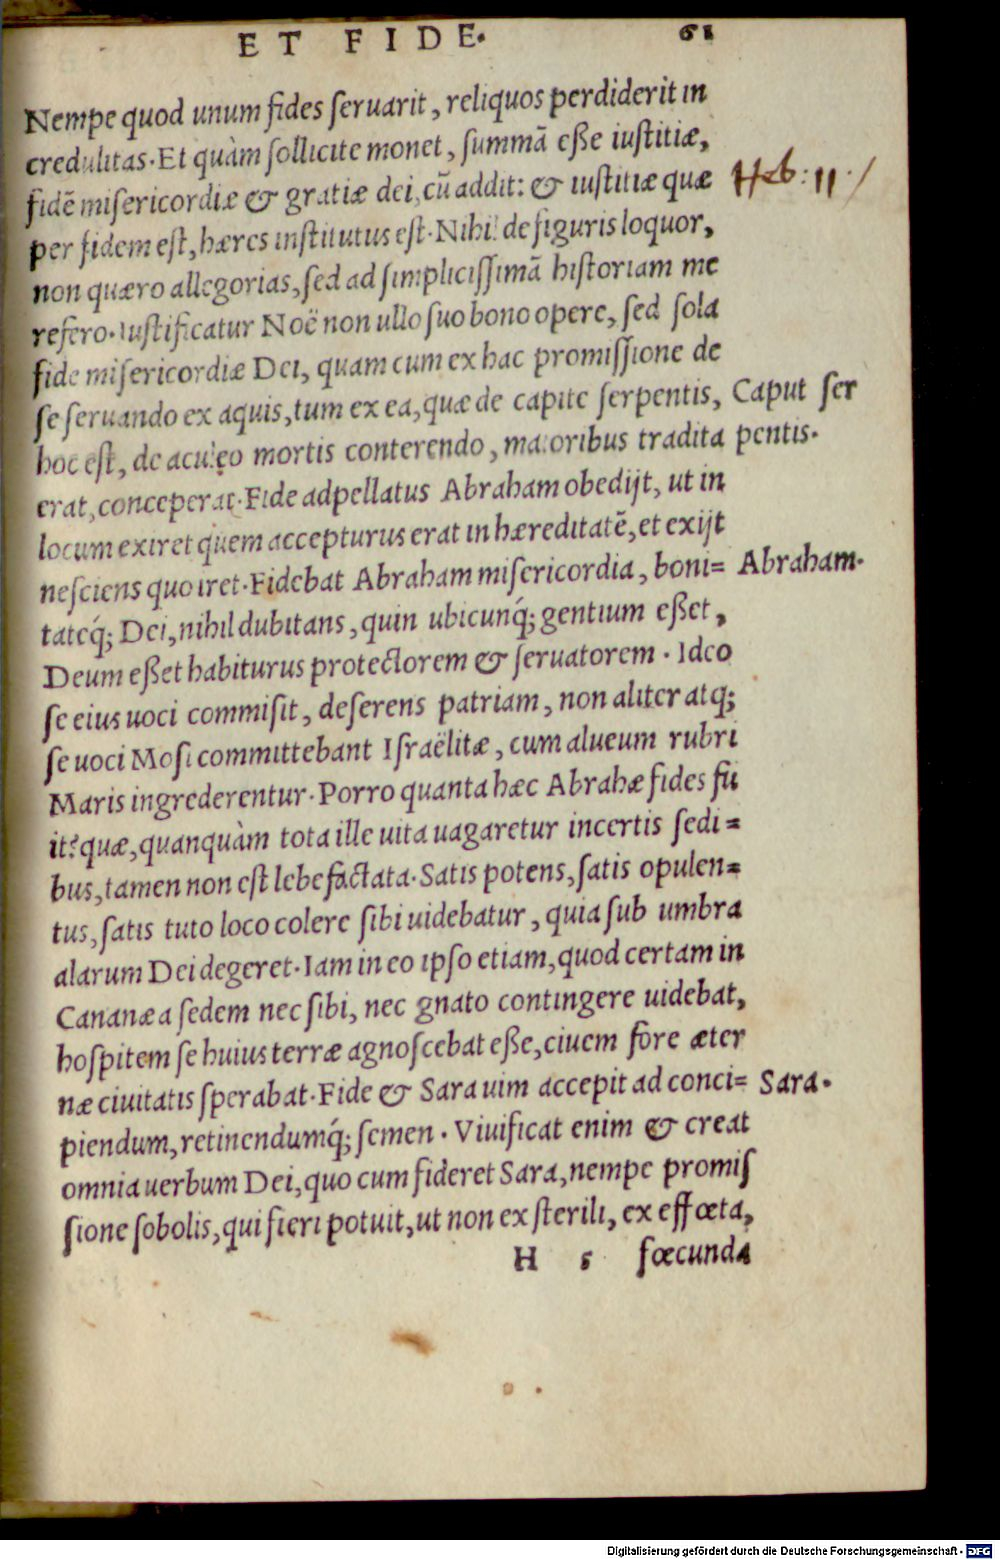 ET FIDE. 61
Nempe quod unum fides ſeruarit, reliquos perdiderit in
credulitas. Et quàm ſollicite monet, ſummã eße iuſtitiæ,
fidẽ miſericordiæ & gratiæ dei, cũ addit: & iuſtitiæ quæ
Heb: 11
per fidem eſt, hæres inſtitutus eſt. Nihil de figuris loquor,
non quæro allegorias, ſed ad ſimpliciſſimã hiſtoriam me
refero. Iuſtificatur Noë non ullo ſuo bono opere, ſed ſola
fide miſericordiæ Dei, quam cum ex hac promiſſione de
ſe ſeruando ex aquis, tum ex ea, quæ de capite ſerpentis,
Caput ſer
hoc eſt, de aculeo mortis conterendo, maioribus tradita
pentis.
erat, conceperat. Fide adpellatus Abraham obedijt, ut in
locum exiret quem accepturus erat in hæreditatẽ, et exijt
neſciens quo iret. Fidebat Abraham miſericordia, boni=
Abraham.
tateq́; Dei, nihil dubitans, quin ubicunq́; gentium eßet,
Deum eßet habiturus protectorem & ſeruatorem. Ideo
ſe eius uoci commiſit, deſerens patriam, non aliter atq;
ſe uoci Moſi committebant Iſraëlitæ, cum alueum rubri
Maris ingrederentur. Porro quanta hæc Abrahæ fides fu
it? quæ, quanquàm tota ille uita uagaretur incertis ſedi=
bus, tamen non eſt lebefactata. Satis potens, ſatis opulen=
tus, ſatis tuto loco colere ſibi uidebatur, quia ſub umbra
alarum Dei degeret. Iam in eo ipſo etiam, quod certam in
Cananæa ſedem nec ſibi, nec gnato contingere uidebat,
hoſpitem ſe huius terræ agnoſcebat eße, ciuem fore æter
næ ciuitatis ſperabat. Fide & Sara uim accepit ad conci=
Sara.
piendum, retinendumq́; ſemen. Viuificat enim & creat
omnia uerbum Dei, quo cum fideret Sara, nempe promiſ
ſione ſobolis, qui fieri potuit, ut non ex ſterili, ex effœta,
H 5 fœcunda
Digitalisierung gefördert durch die Deutsche Forschungsgemeinschaft - DFG